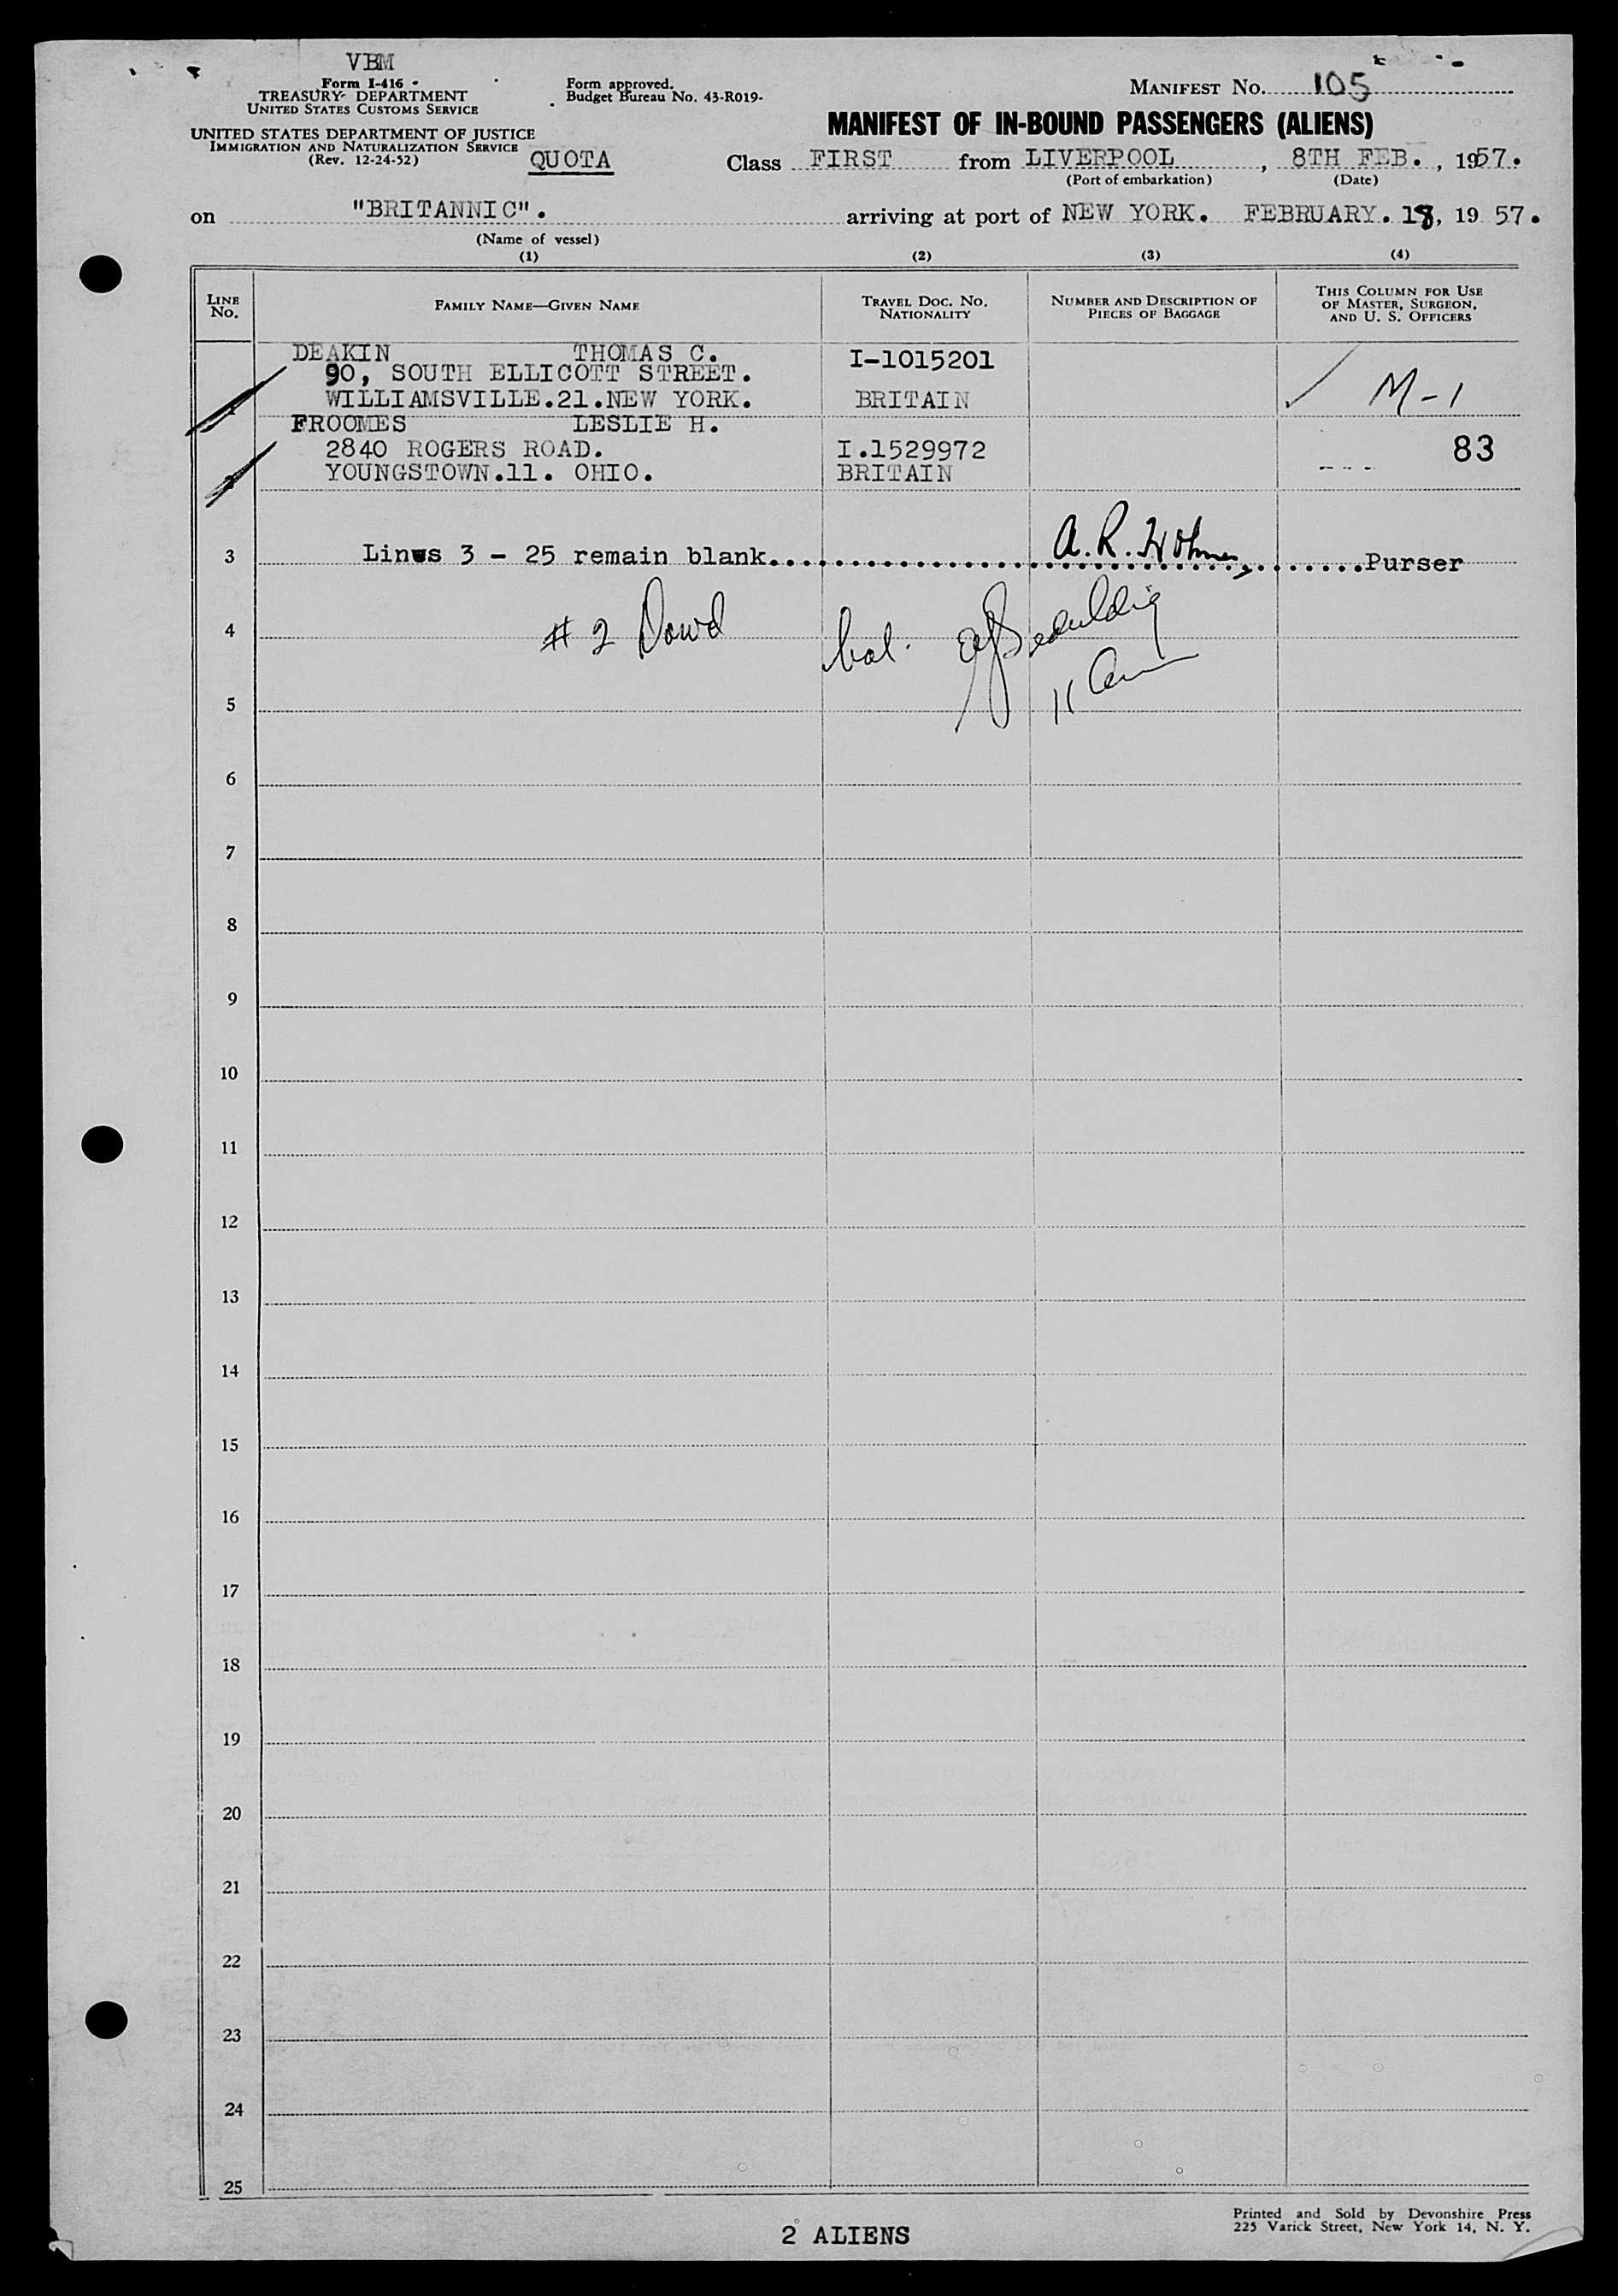 VBM
Form I-416
TREASURY DEPARTMENT
UNITED STATES CUSTOMS SERVICE
Form approved.
Budget Bureau No. 43-R019-
MANIFEST NO. 105
UNITED STATES DEPARTMENT OF JUSTICE
IMMIGRATION AND NATURALIZATION SERVICE
(Rev. 12-24-52)
QUOTA
MANIFEST OF IN-BOUND PASSENGERS (ALIENS)
Class FIRST from LIVERPOOL, 8TH FEB., 1957.
(Port of embarkation) (Date)
on "BRITANNIC". arriving at port of NEW YORK. FEBRUARY. 18, 19 57.
(Name of vessel)
(1) (2) (3) (4)
LINE No.
FAMILY NAME—GIVEN NAME
TRAVEL DOC. NO. NATIONALITY
NUMBER AND DESCRIPTION OF PIECES OF BAGGAGE
THIS COLUMN FOR USE OF MASTER, SURGEON, AND U. S. OFFICERS
DEAKIN THOMAS C. I-1015201
90, SOUTH ELLICOTT STREET.
WILLIAMSVILLE.21.NEW YORK. BRITAIN M-1
FROOMES LESLIE H.
2840 ROGERS ROAD. I.1529972 83
YOUNGSTOWN.11. OHIO. BRITAIN
3 Lines 3 - 25 remain blank. A. R. Purser
4 # 2 Dowd bal.
5
6
7
8
9
10
11
12
13
14
15
16
17
18
19
20
21
22
23
24
25
2 ALIENS
Printed and Sold by Devonshire Press
225 Varick Street, New York 14, N. Y.